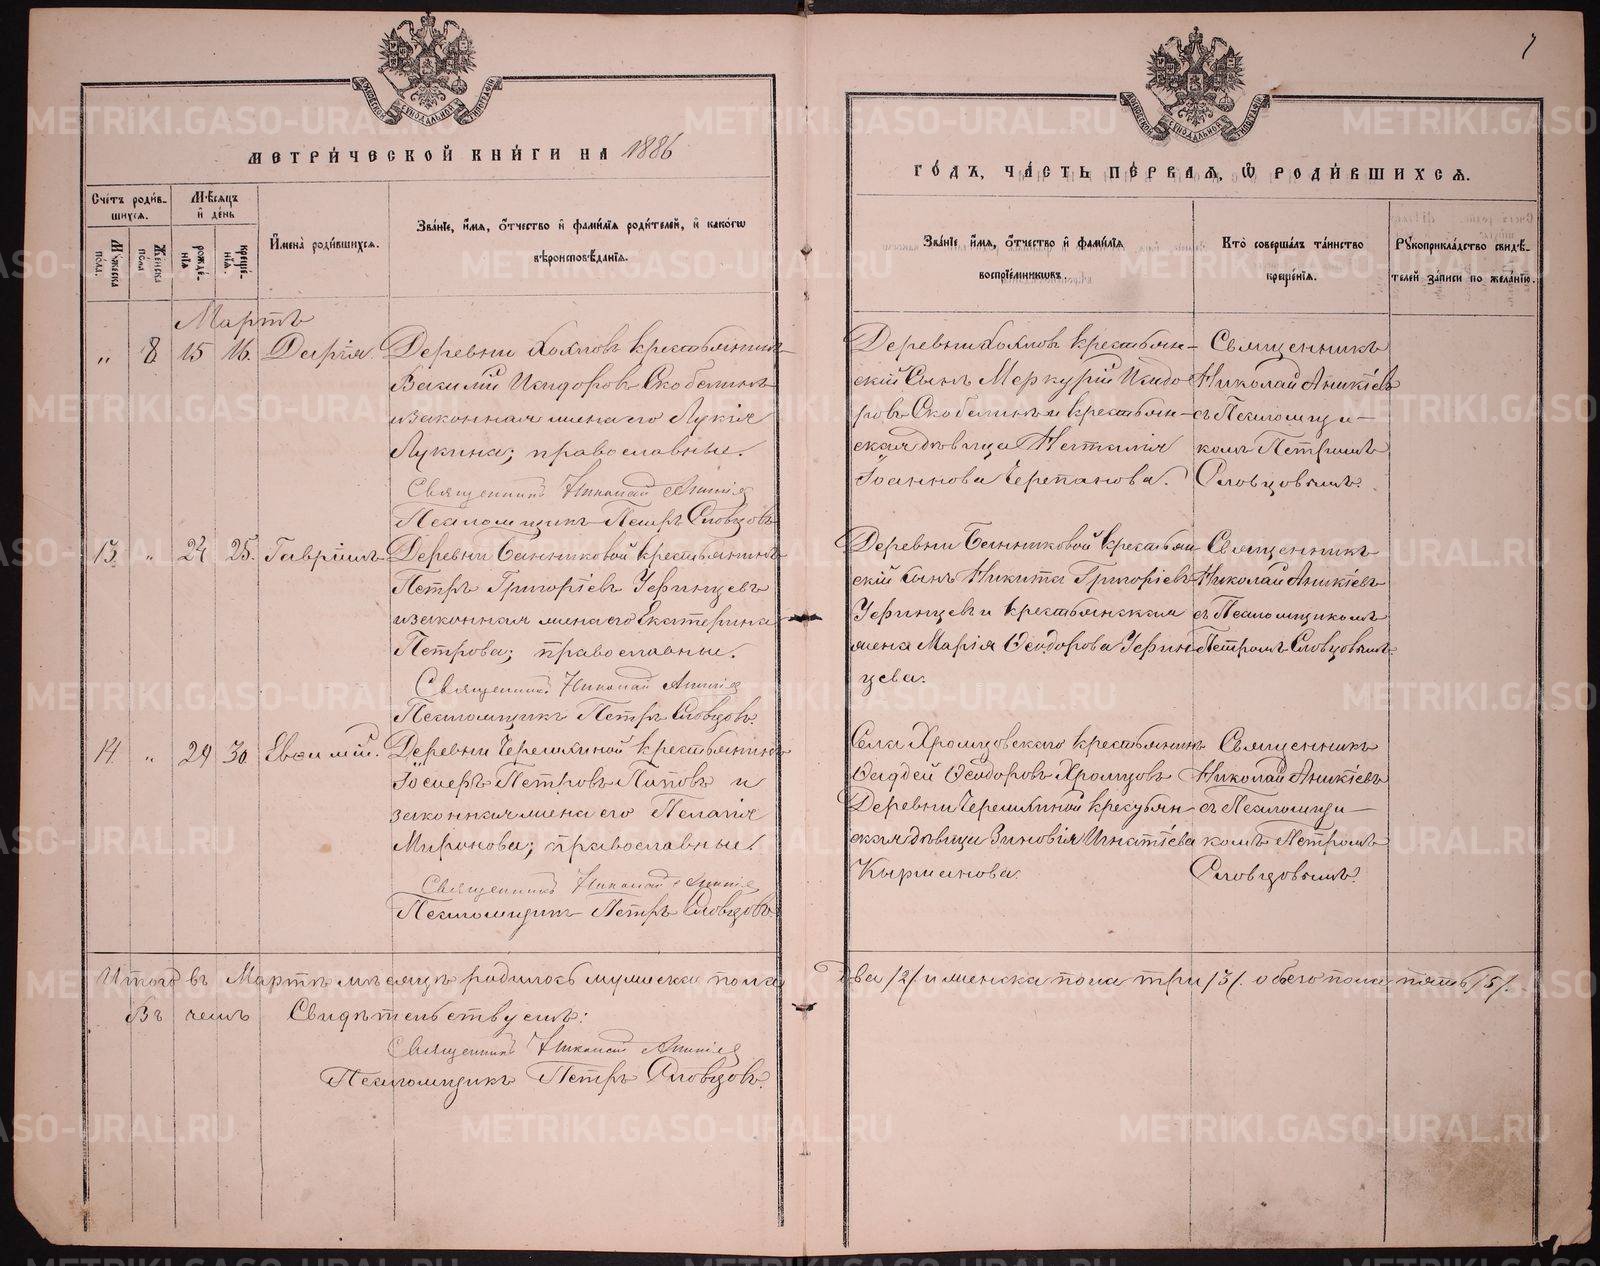 7
МЕТРИ́ЧЕСКОЙ КНИ́ГИ НА 1886
ГО́ДЪ, ЧА́СТЬ ПЕ́РВАЯ, Ѡ҆ РОДИ́ВШИХСЯ.
Сче́тъ роди́в-
шихся.
Мꙋжеска по́ла.
Же́нска по́ла
Мѣ́сяцъ
и де́нь
рожде́-
нїя
креще́-
нїя.
И҆мена̀ роди́вшихся.
Зва́нїе, и҆́мя, о҆́тчество и҆ фами́лїя роди́телей, и҆ како́гѡ
вѣроисповѣ́данїя.
Зва́нїе, и҆́мя, о҆́тчество и҆ фами́лїя
воспрїе́мникѡвъ.
Кто̀ соверша́лъ та́инство
креще́нїя.
Рꙋкоприкла́дство свидѣ́-
телей за́писи по жела́нїю.
Мартъ
„ 8 15 16. Дарія.
Деревни Хохловъ крестьянинъ
Василій Исидоровъ Скобелинъ
и законная жена его Лукія
Лукина; православные.
Священникъ Николай Аникіев
Псаломщикъ Петръ Словцовъ
Деревни Хохловъ крестьян-
скій сынъ Меркурій Исидо
ровъ Скобелинъ и крестьян-
ская дѣвица Наталія
Іоаннова Черепанова.
Священникъ
Николай Аникіевъ
съ Псаломщи-
комъ Петромъ
Словцовымъ.
13. „ 24 25. Гавріилъ
Деревни Банниковой крестьянинъ
Петръ Григоріевъ Уфинцевъ
и законная жена его Екатерина
Петрова; православные.
Священникъ Николай Аникіев
Псаломщикъ Петръ Словцовъ.
Деревни Банниковой крестьян
скій сынъ Никита Григоріевъ
Уфинцевъ и крестьянская
жена Марія Ѳеодорова Уфин-
цева.
Священникъ
Николай Аникіевъ
съ Псаломщикомъ
Петромъ Словцовымъ.
14. „ 29 30. Евѳимій.
Деревни Черемхиной крестьянинъ
Іосифъ Петровъ Поповъ и
законная жена его Пелагія
Миронова; православные.
Священникъ Николай Аникіев
Псаломщикъ Петръ Словцовъ
Села Хромцовскаго крестьянинъ
Ѳаддей Ѳеодоровъ Хромцовъ
Деревни Черемхиной крестьян-
ская дѣвица Зиновія Игнатіева
Кырчанова.
Священникъ
Николай Аникіевъ
съ Псаломщи-
комъ Петромъ
Словцовымъ.
Итого въ Мартѣ мѣсяцѣ родилось мужеска пола два /2/. и женска пола три /3/. обоего пола пять /5/.
Въ чемъ Свидѣтельствуемъ:
Священникъ Николай Аникіев
Псаломщикъ Петръ Словцовъ.
METRIKI.GASO-URAL.RU